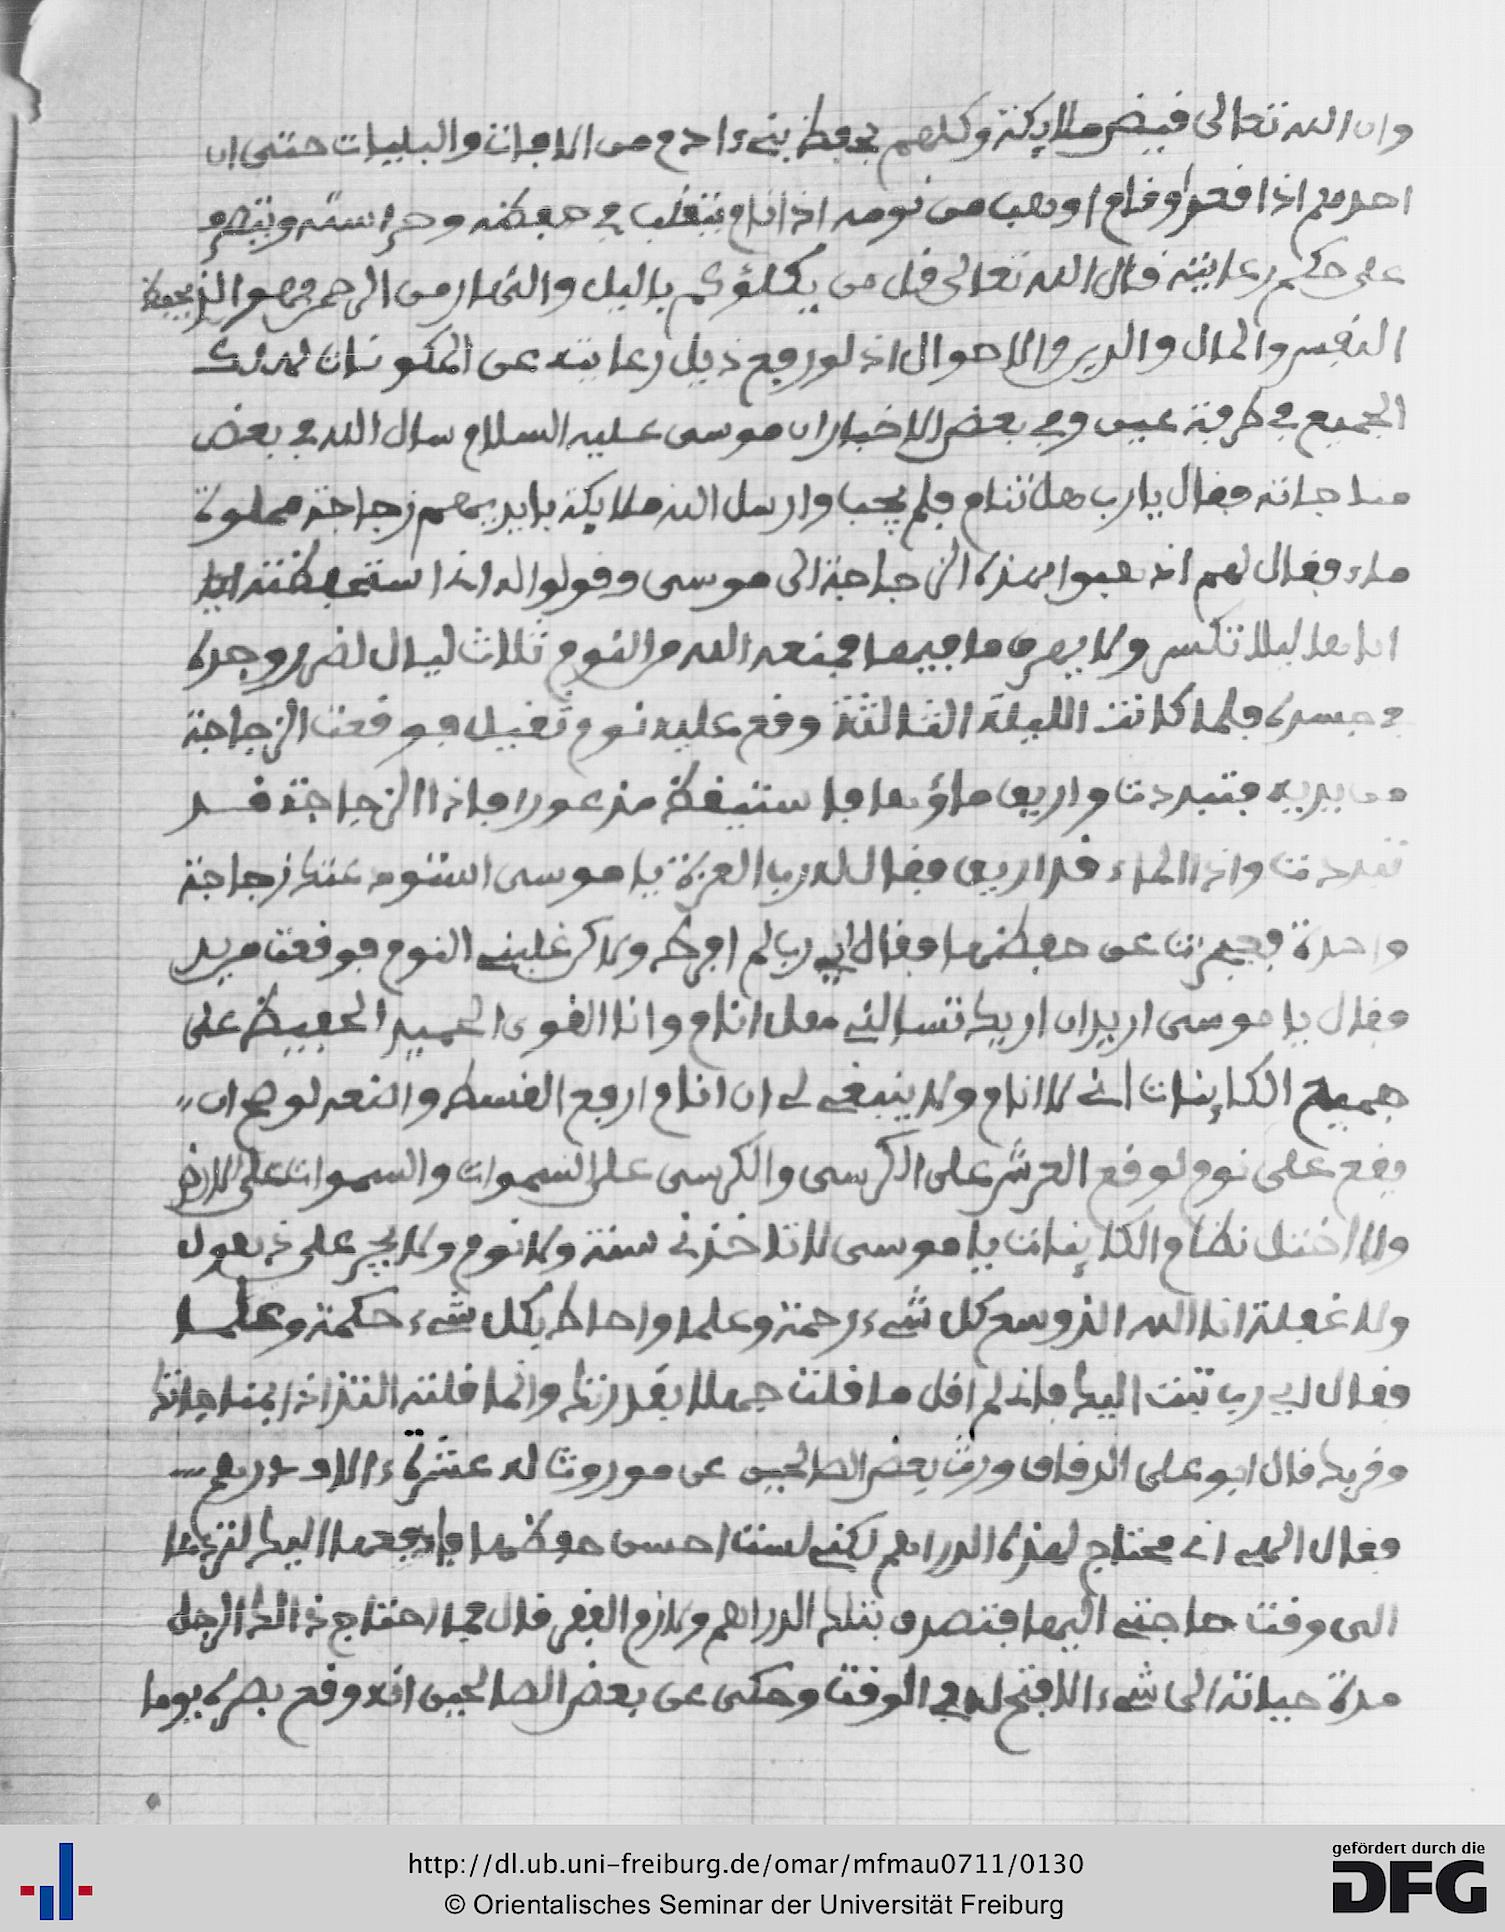 وان الله تعالى فيض ملايكة وكلهم بحفظ بني ءادم من الافات والبليات حتى ان
احدهم اذا فعل او قام او وهب من نومه اذا نام يتقلب في حفظه وحراسته ويتصرف
على حكم رعايته قال الله تعالى قل من يكلؤكم باليل والنهار من الرحمن فهو الذي يحفظ
النفس والمال والدين والاحوال اذ لو رفع ذيل رعايته عن المكونات لهلك
الجميع في طرفة عين وفي بعض الاخبار ان موسى عليه السلام سال الله في بعض
مناجاته فقال يا رب هل تنام فلم يجب وارسل الله ملايكة بايديهم زجاجة مملوة
ماء فقال لهم اذهبوا بهذه الزجاجة الى موسى وقولوا له اذا استحفظته
اياها ليلا تنكسر ولا يهرق ما فيها فمنعه الله من النوم ثلاث ليال لضر وجده
في جسده فلما كانت الليلة الثالثة وقع عليه نوم ثقيل فوقعت الزجاجة
من يديه فتبددت واريق ماؤها فاستيقظ مذعورا فاذا الزجاجة قد
تبددت واذا الماء قد اريق فقال له رب العزة يا موسى استودعتك زجاجة
واحدة فعجزت عن حفظها فقال اي رب لم افرط ولاكن غلبني النوم فوقعت من يد
وقال يا موسى اريد ان اريك تسالني هل انام وانا القوى الحميد الحفيظ على
جميع الكاينات اني لا انام ولا ينبغي لي ان انام ارفع القسط واضعه لو هم ان
يقع على نوم لوقع العرش على الكرسى والكرسى على السموات والسموات على الارض
ولا اختل نظام الكاينات يا موسى لا تاخذني سنة ولا نوم ولا يجر على ذهول
ولا غفلة انا الله الذي وسع كل شيء رحمة وعلما واحاط بكل شيء حكمة وعلما
فقال اي رب تبت اليك فاني لم اقل ما قلت جهلا بقدرتك وانما قلته التذاذا بمناجاتك
وقربك قال ابو على الدقاق ورث بعض الصالحين عن موروث له عشرة ءالاف درهم
فقال الهي اني محتاج لهذه الدراهم لكني لست احسن حفظها فادفعها اليك لتردها
الى وقت حاجتي اليها فتصدق بتلك الدراهم ولازم الفقر قال فما احتاج ذالك الرجل
مدة حياته الى شيء الا فتح له في الوقت وحكى عن بعض الصالحين انه وقع بصره يوما
http://dl.ub.uni-freiburg.de/omar/mfmau0711/0130
© Orientalisches Seminar der Universität Freiburg
gefördert durch die
DFG